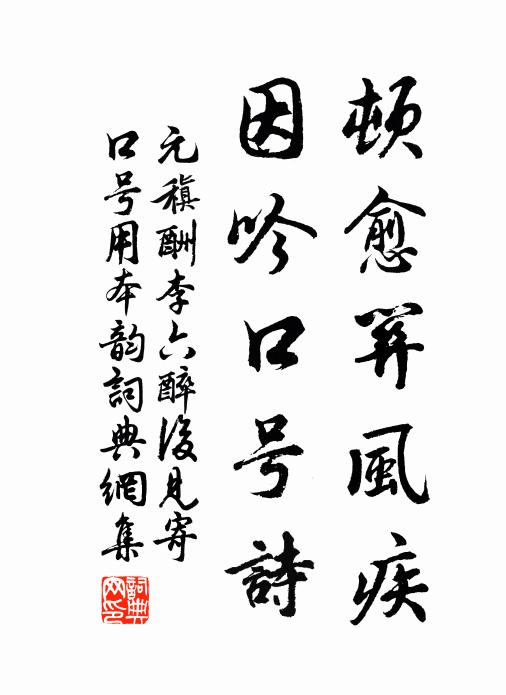 頓愈關風疾
因吟口号詩
元稹酬李六醉後見寄
口号用本韵詞典網集
詞典
网印